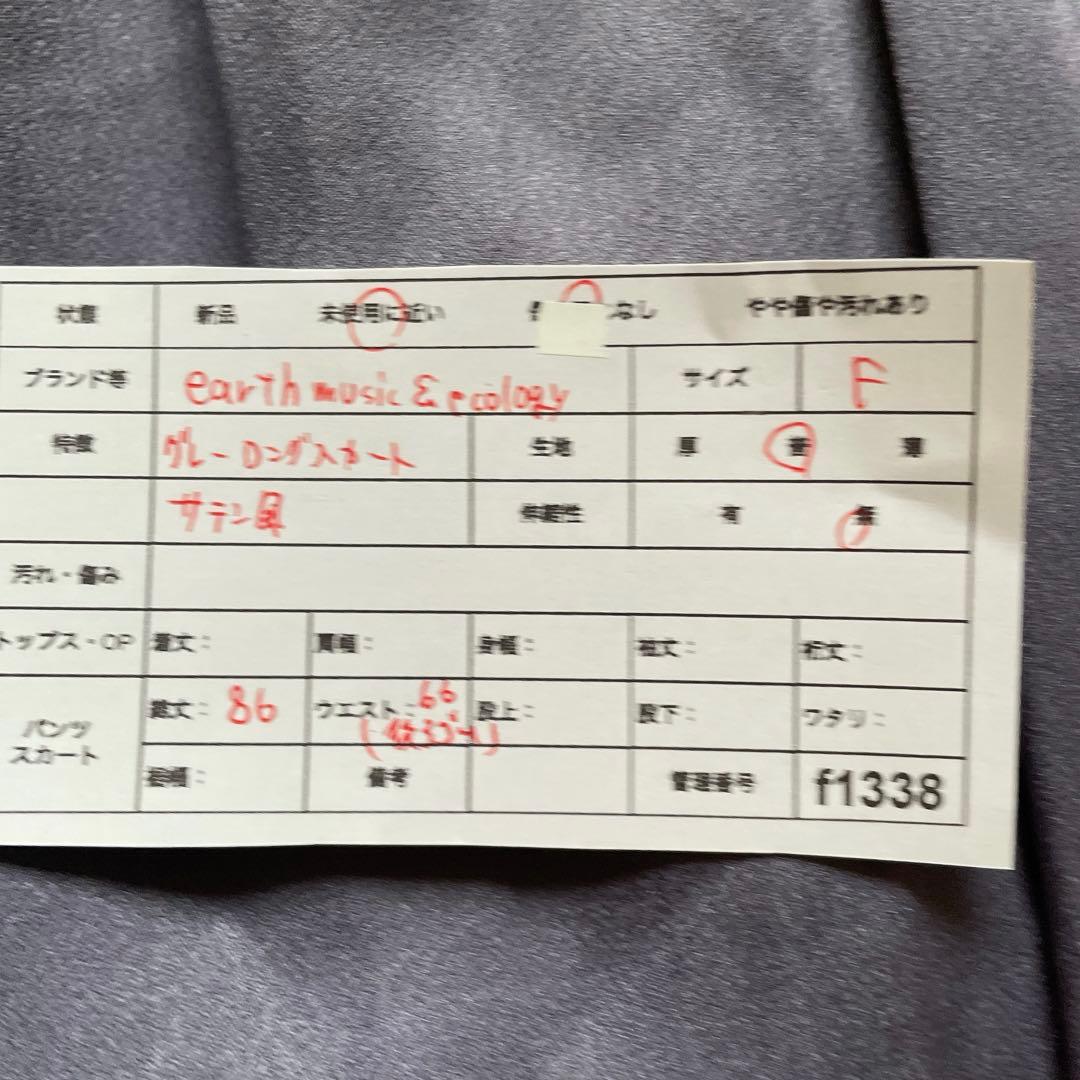 状態 新品 未使用に近い なし やや傷や汚れあり
ブランド等 earth music & ecology サイズ F
特徴 グレーロングスカート 生地 厚 普 薄
サテン風 伸縮性 有 無
汚れ・傷み
トップス・OP 着丈: 肩幅: 身幅: 袖丈: 裄丈:
パンツ スカート 総丈: 86 ウエスト: 66 股上: 股下: ワタリ:
(後ろゴム)
裾幅: 備考 管理番号 f1338